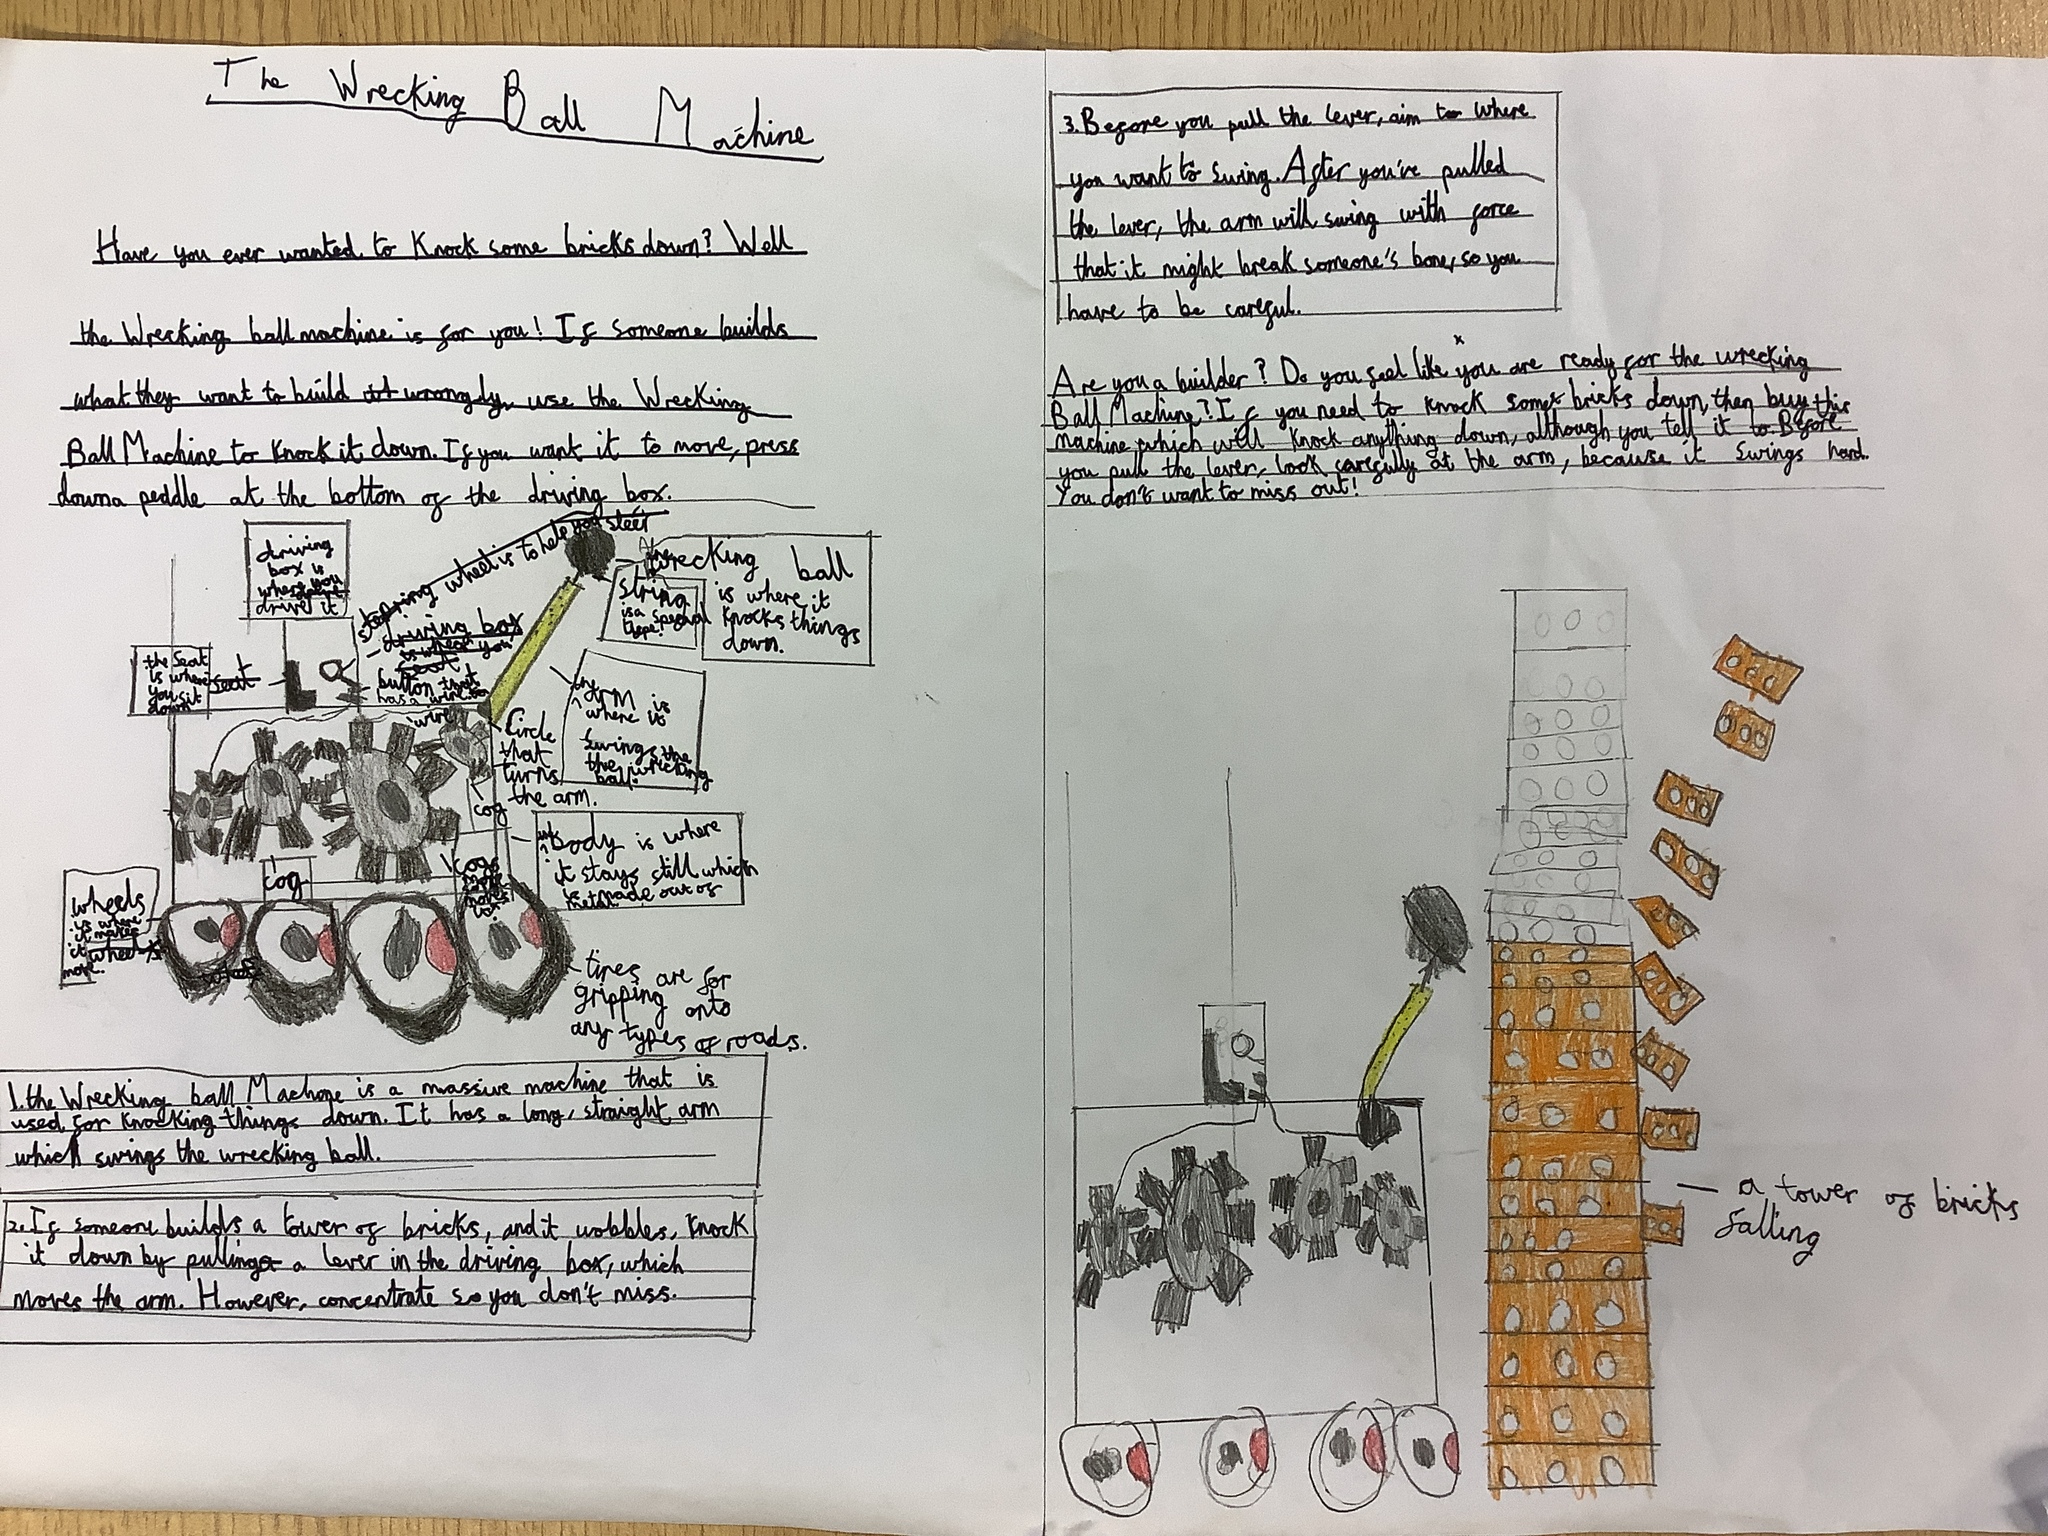 The Wrecking Ball Machine
Have you ever wanted to Knock some bricks down? Well
the Wrecking ball machine is for you! If someone builds
what they want to build wrongly, use the Wrecking
Ball Machine to Knock it down. If you want it to move, press
down a peddle at the bottom of the driving box.
driving
box is
where you
drive it
steering wheel is to help you steer
the wrecking ball
is where it
Knocks things
down.
string
is a special
driving box
is where you
seat
button that
has a wire
the seat
is where
you sit
down
seat
wire
the ARM is
where it
swings the
the wrecking
ball.
Circle
that
turns
the arm.
cog
the Body is where
it stays still which
is made out of
metal
cog
cogs
wheels
is where
it makes
it
move.
wheels
wheel
tires are for
gripping onto
any types of roads.
1. the Wrecking ball Machone is a massive machine that is
used for Knocking things down. It has a long, straight arm
which swings the wrecking ball.
2. If someone builds a tower of bricks, and it wobbles, Knock
it down by pulling a lever in the driving box, which
moves the arm. However, concentrate so you don't miss.
3. Before you pull the lever, aim to where
you want to swing. After you've pulled
the lever, the arm will swing with force
that it might break someone's bone, so you
have to be careful.
Are you a builder? Do you feel like you are ready for the wrecking
Ball Machine? If you need to Knock some bricks down, then buy this
machine which will Knock anything down, although you tell it to. Before
you pull the lever, look carefully at the arm, because it swings hard.
You don't want to miss out!
a tower of bricks
falling